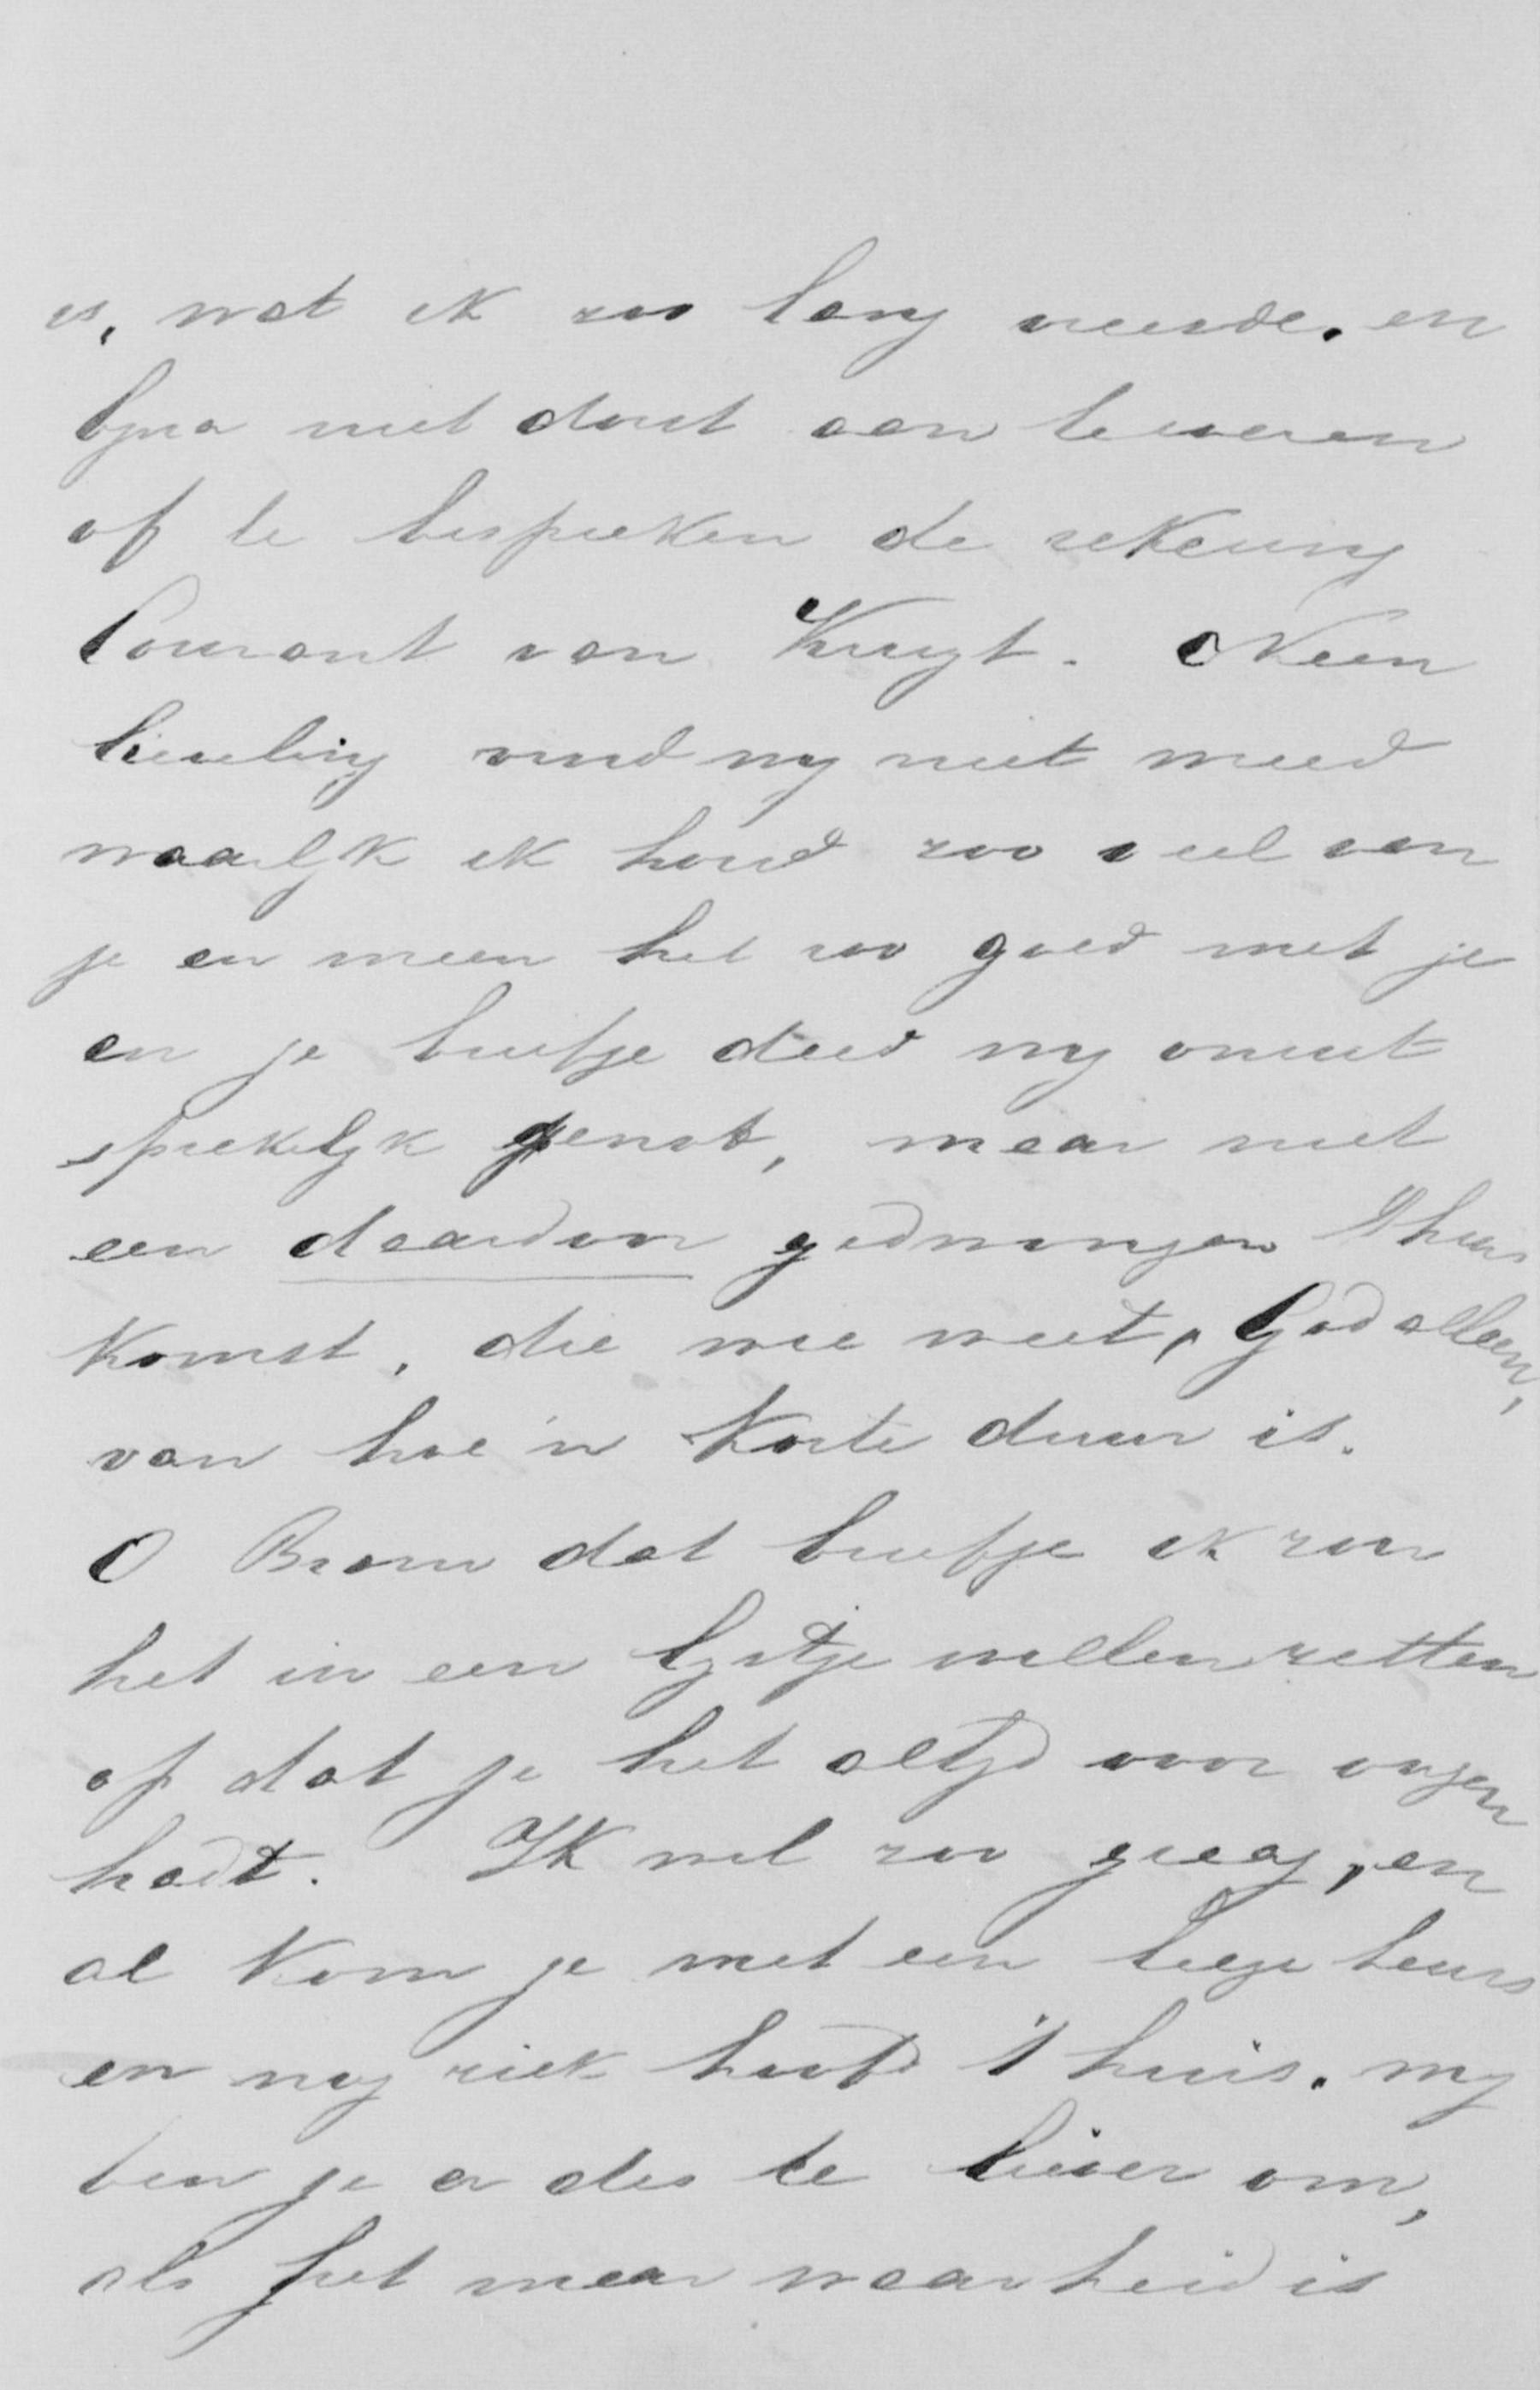 is, wat ik zoo lang vreesde. en
byna niet dorst aan te roeren
of te bespreken de rekening
Courant van Kruyt. Neen
lieveling vind my niet wreed
waarlyk ik houd zoo veel van
je en meen het zoo goed met je
en je briefje deed my onuit
sprekelyk genot, maar niet
een daardoor gedwongen Thuis
komst, die wie weet, God alleen,
van hoe 'n korte duur is.
O Bram dat briefje ik zou
het in een lystje willen zetten
op dat je het altyd voor oogen
hadt. Ik wil zoo graag, en
al kom je met een leege beurs
en nog ziek hoofd t'huis. my
ben je er des te liever om,
als het maar waarheid is